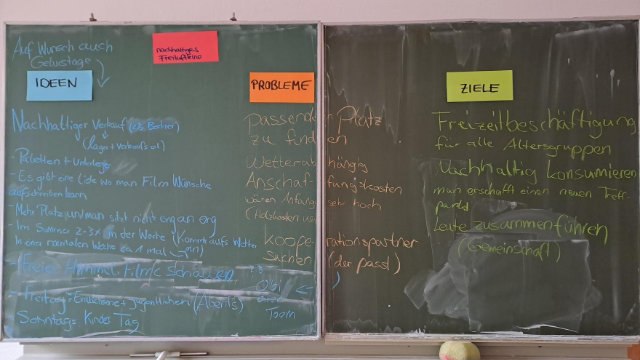 Auf Wunsch auch
Gelustage
nachhaltiges
Freiluftkino
IDEEN
PROBLEME
ZIELE
Nachhaltiger Verkauf
• Paletten + Unterlage
- Es gibt eine Liste wo man Film Wünsche
aufschreiben kann
- Mehr Platz und man sitzt nicht eng an
- Im Sommer 2-3x in der Woche
In einer normalen Woche
- Freie Himmel Filme schauen
- Freitag = Erwachsene + Jugentlichen
Sonntags Kinder Tag
Passender Platz
zu finden
Wetterabhängig
Anschaffungskosten
wären Anfangs sehr hoch
Kooperationspartner
suchen (der passt)
Team
Freizeitbeschäftigung
für alle Altersgruppen
Nachhaltig konsumieren
man erschafft einen neuen Treff-
punkt
Leute zusammenführen
(Gemeinschaft)